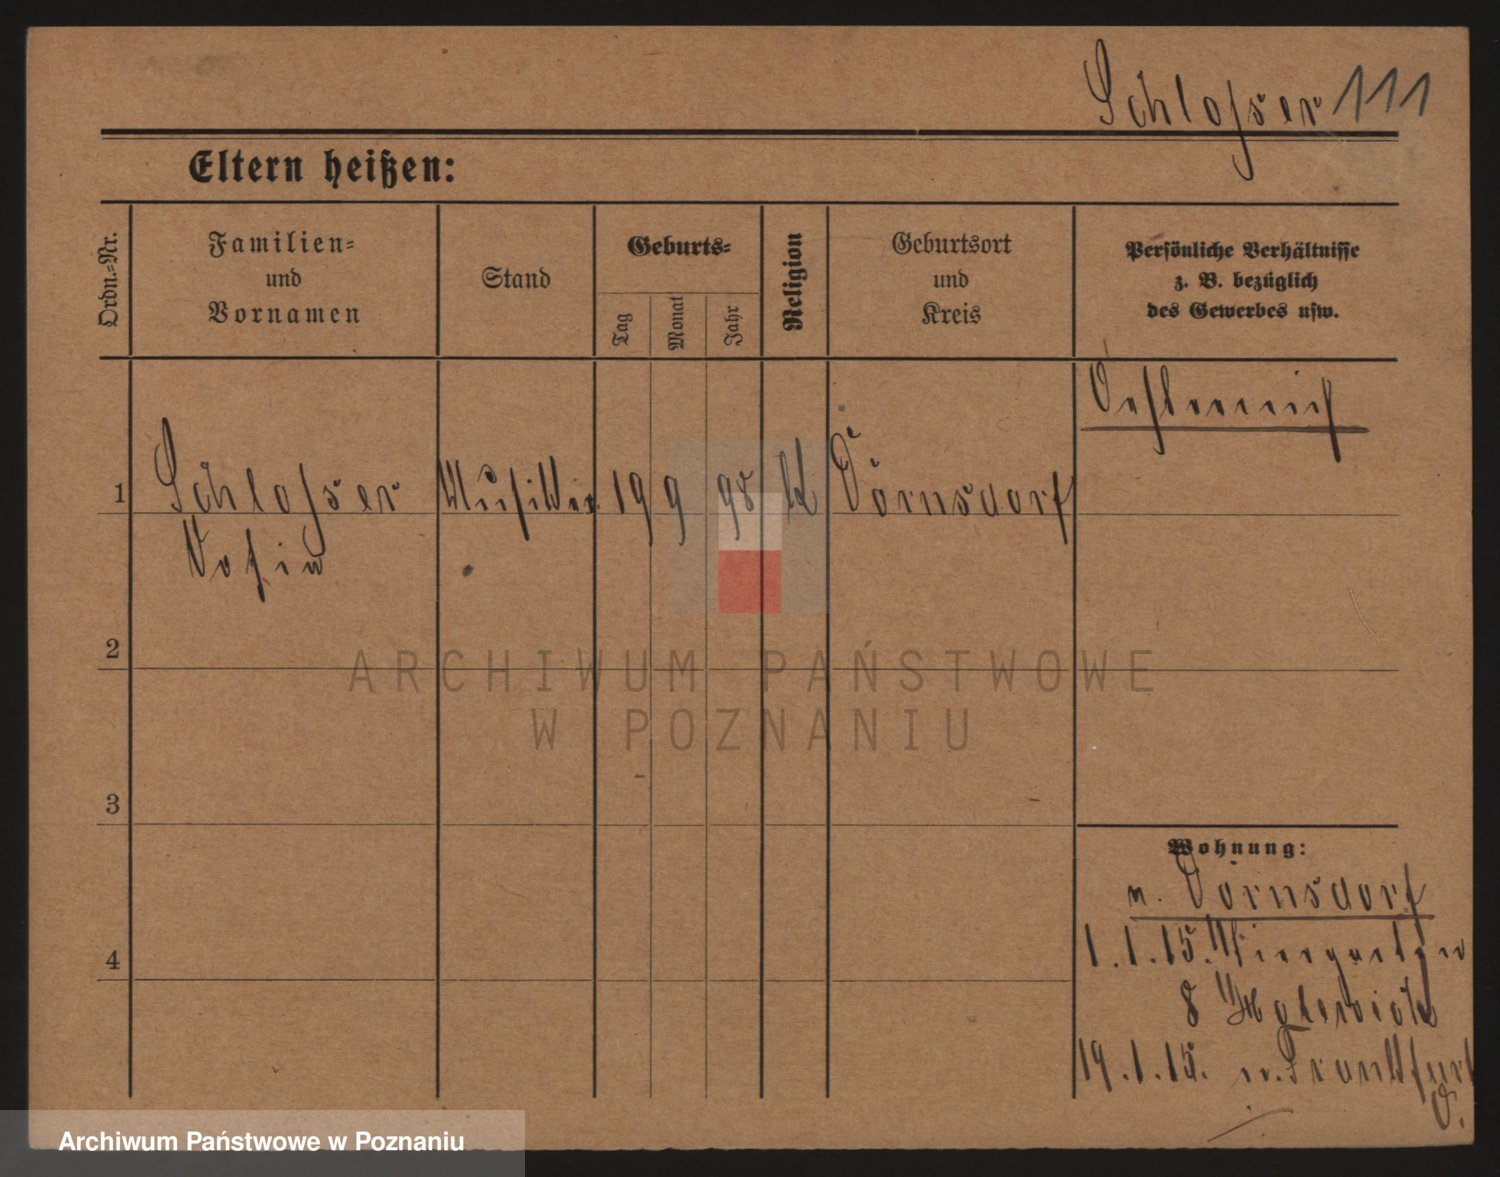 Schlosser 111
Eltern heißen:
Ordn.-Nr.
Familien-
und
Vornamen
Stand
Geburts-
Tag
Monat
Jahr
Religion
Geburtsort
und
Kreis
Persönliche Verhältnisse
z. B. bezüglich
des Gewerbes usw.
Oesterreich
1 Schlosser Musiker 19 9 98 k Dörnsdorf
2
3
4
Wohnung:
n. Dörnsdorf
1.1.15. Wiengarten
8
19.1.15. n. Frankfurt
O.
ARCHIWUM PAŃSTWOWE
W POZNANIU
Archiwum Państwowe w Poznaniu